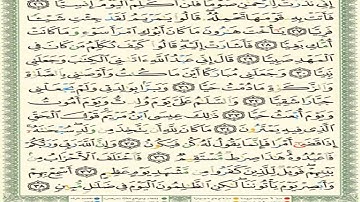 إِنِّى نَذَرْتُ لِلرَّحْمَٰنِ صَوْمًا فَلَنْ أُكَلِّمَ ٱلْيَوْمَ إِنسِيًّا ٢٦
فَأَتَتْ بِهِۦ قَوْمَهَا تَحْمِلُهُۥ قَالُوا۟ يَٰمَرْيَمُ لَقَدْ جِئْتِ شَيْـًٔا
فَرِيًّا ٢٧ يَٰٓأُخْتَ هَٰرُونَ مَا كَانَ أَبُوكِ ٱمْرَأَ سَوْءٍ وَمَا كَانَتْ
أُمُّكِ بَغِيًّا ٢٨ فَأَشَارَتْ إِلَيْهِ قَالُوا۟ كَيْفَ نُكَلِّمُ مَن كَانَ فِى
ٱلْمَهْدِ صَبِيًّا ٢٩ قَالَ إِنِّى عَبْدُ ٱللَّهِ ءَاتَىٰنِىَ ٱلْكِتَٰبَ وَجَعَلَنِى
نَبِيًّا ٣٠ وَجَعَلَنِى مُبَارَكًا أَيْنَ مَا كُنتُ وَأَوْصَٰنِى بِٱلصَّلَوٰةِ
وَٱلزَّكَوٰةِ مَا دُمْتُ حَيًّا ٣١ وَبَرًّۢا بِوَٰلِدَتِى وَلَمْ يَجْعَلْنِى
جَبَّارًا شَقِيًّا ٣٢ وَٱلسَّلَٰمُ عَلَىَّ يَوْمَ وُلِدتُّ وَيَوْمَ أَمُوتُ
وَيَوْمَ أُبْعَثُ حَيًّا ٣٣ ذَٰلِكَ عِيسَى ٱبْنُ مَرْيَمَ قَوْلَ ٱلْحَقِّ
ٱلَّذِى فِيهِ يَمْتَرُونَ ٣٤ مَا كَانَ لِلَّهِ أَن يَتَّخِذَ مِن وَلَدٍ سُبْحَٰنَهُۥٓ
إِذَا قَضَىٰٓ أَمْرًا فَإِنَّمَا يَقُولُ لَهُۥ كُن فَيَكُونُ ٣٥ وَإِنَّ ٱللَّهَ رَبِّى وَرَبُّكُمْ
فَٱعْبُدُوهُ هَٰذَا صِرَٰطٌ مُّسْتَقِيمٌ ٣٦ فَٱخْتَلَفَ ٱلْأَحْزَابُ مِنۢ
بَيْنِهِمْ فَوَيْلٌ لِّلَّذِينَ كَفَرُوا۟ مِن مَّشْهَدِ يَوْمٍ عَظِيمٍ ٣٧ أَسْمِعْ بِهِمْ
وَأَبْصِرْ يَوْمَ يَأْتُونَنَا لَٰكِنِ ٱلظَّٰلِمُونَ ٱلْيَوْمَ فِى ضَلَٰلٍ مُّبِينٍ ٣٨